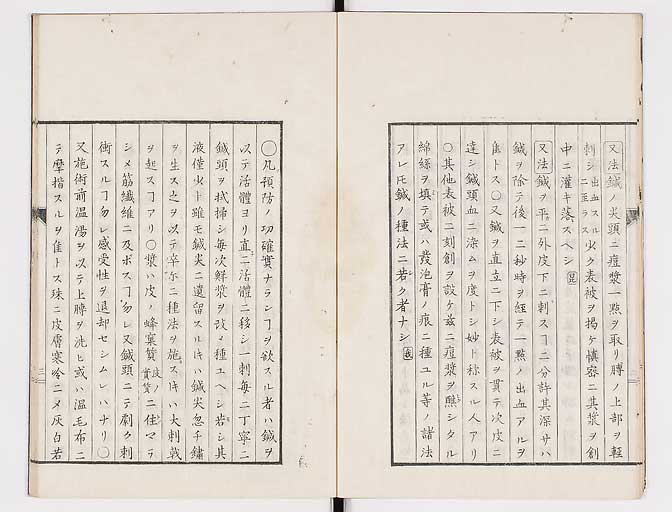 又法鍼ノ尖頭ニ痘漿一點ヲ取リ膊ノ上部ヲ輕
刺シ出血スルニ至ラス少ク表被ヲ揚ケ愼密ニ其漿ヲ創
中ニ灌キ落スヘシ
又法鍼ヲ平ニ外皮下ニ刺スヿ二分許其深サハ
鍼ヲ除テ後一二秒時ヲ經テ一點ノ出血アルヲ
隹トス〇又鍼ヲ直立ニ下シ表被ヲ貫テ次皮ニ
達シ鍼頭血ニ染ムヲ度トシ妙ト称スル人アリ
〇其他表被ニ刻創ヲ設ケ玆ニ痘漿ヲ蘸シタル
綿絲ヲ填テ或ハ發泡膏ノ痕ニ種ユル等ノ諸法
アレ𪜈鍼ノ種法ニ若ク者ナシ
〇凡預防ノ功確實ナランヿヲ欲スル者ハ鍼ヲ
以テ活體ヨリ直ニ活體ニ移シ一刺毎ニ丁寧ニ
鍼頭ヲ拭掃シ毎次鮮漿ヲ改メ種ユヘシ若シ其
液僅少ト雖モ鍼尖ニ遺留スルキハ鍼尖忽チ鏽
ヲ生ス之ヲ以テ辛尓ニ種法ヲ施スキハ大刺戟
ヲ起スヿアリ〇漿ハ皮ノ蜂窠質皮ノ實質ニ住マテ
シメ筋纖維ニ及ボスヿ勿レ又鍼頭ニテ劇ク刺
衝スルヿ勿レ感受性ヲ退却セシムレハナリ〇
又施術前温湯ヲ以テ上膊ヲ洗ヒ或ハ温毛布ニ
テ摩揩スルヲ隹トス殊ニ皮膚寒冷ニメ灰白若